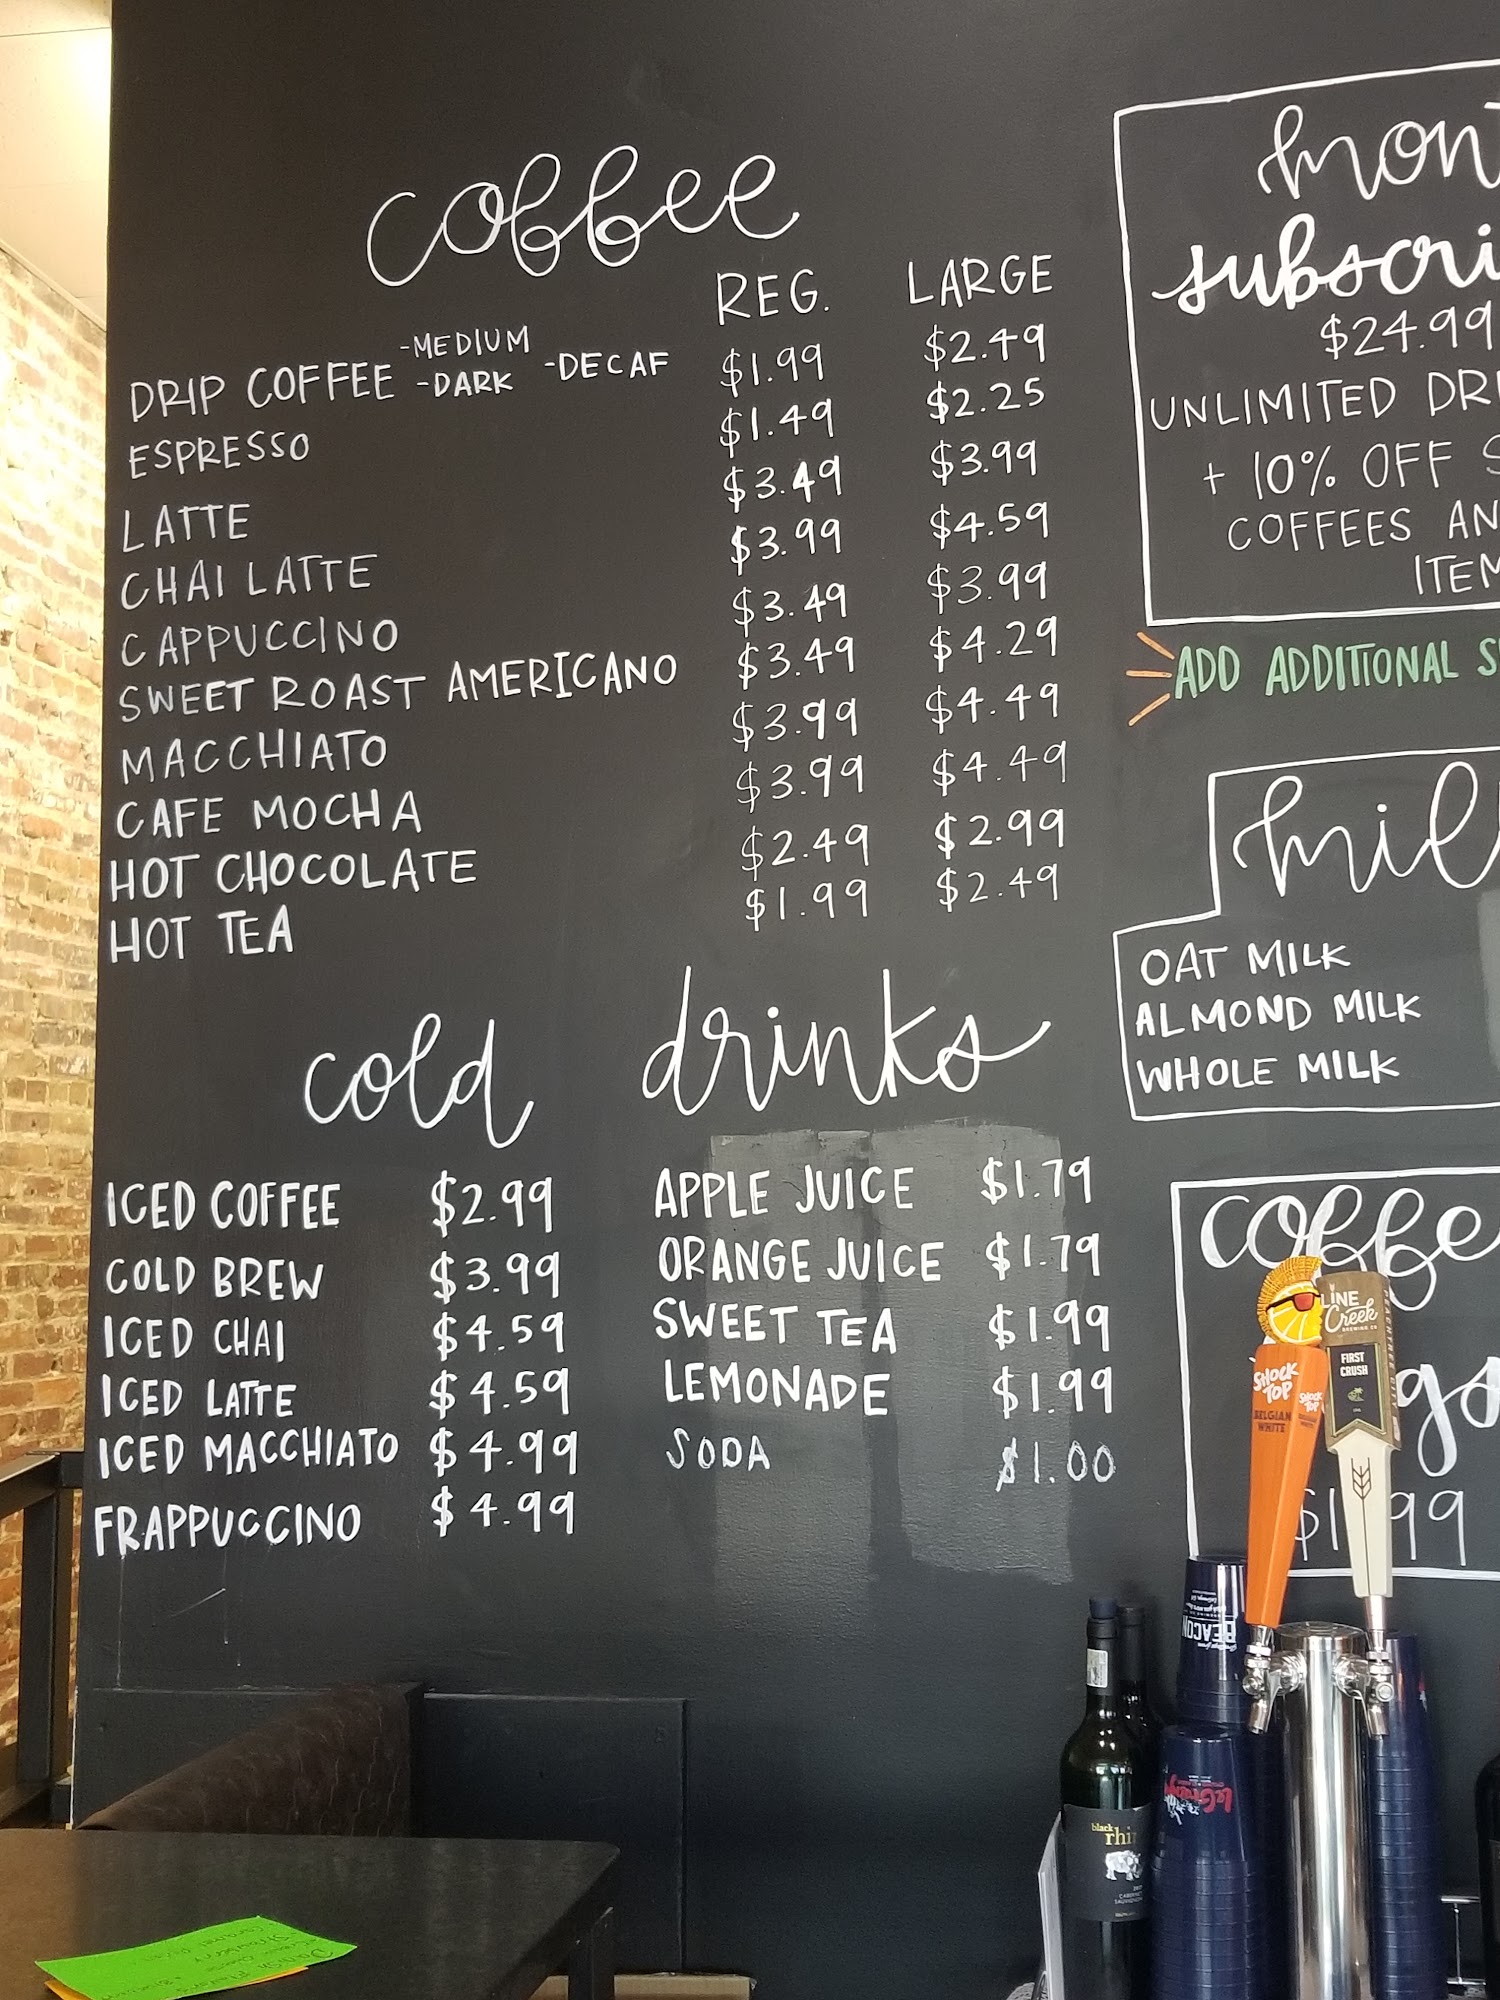 coffee
REG. LARGE
DRIP COFFEE -MEDIUM -DARK -DECAF $1.99 $2.49
ESPRESSO $1.49 $2.25
LATTE $3.49 $3.99
CHAI LATTE $3.99 $4.59
CAPPUCCINO $3.49 $3.99
SWEET ROAST AMERICANO $3.49 $4.29
MACCHIATO $3.99 $4.49
CAFE MOCHA $3.99 $4.49
HOT CHOCOLATE $2.49 $2.99
HOT TEA $1.99 $2.49
cold drinks
ICED COFFEE $2.99
COLD BREW $3.99
ICED CHAI $4.59
ICED LATTE $4.59
ICED MACCHIATO $4.99
FRAPPUCCINO $4.99
APPLE JUICE $1.79
ORANGE JUICE $1.79
SWEET TEA $1.99
LEMONADE $1.99
SODA $1.00
mont
subscri
$24.99
UNLIMITED DRI
+ 10% OFF S
COFFEES AN
ITEM
ADD ADDITIONAL S
mil
OAT MILK
ALMOND MILK
WHOLE MILK
coffe
gs
99
SHOCK TOP
BELGIAN WHITE
LINE Creek
BREWING CO
FIRST CRUSH
BEACON
black
rhi
CABERNET
SAUVIGNON